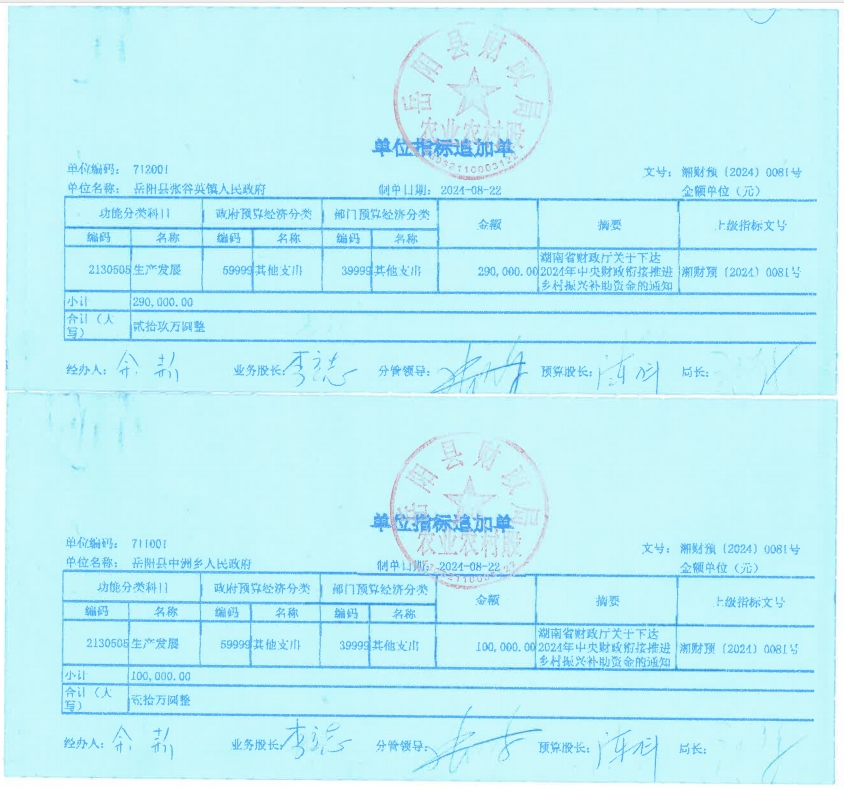 岳阳县财政局
农业农村股
单位指标追加单
单位编码： 712001
文号： 湘财预〔2024〕0081号
单位名称： 岳阳县张谷英镇人民政府
制单日期： 2024-08-22
金额单位（元）
功能分类科目 政府预算经济分类 部门预算经济分类 金额 摘要 上级指标文号
编码 名称 编码 名称 编码 名称
2130505 生产发展 59999 其他支出 39999 其他支出 290,000.00 湖南省财政厅关于下达 湘财预〔2024〕0081号
2024年中央财政衔接推进
乡村振兴补助资金的通知
小计 290,000.00
合计（大写） 贰拾玖万圆整
经办人： 业务股长： 李立志 分管领导： 预算股长： 局长：
岳阳县财政局
农业农村股
单位指标追加单
单位编码： 711001
文号： 湘财预〔2024〕0081号
单位名称： 岳阳县中洲乡人民政府
制单日期： 2024-08-22
金额单位（元）
功能分类科目 政府预算经济分类 部门预算经济分类 金额 摘要 上级指标文号
编码 名称 编码 名称 编码 名称
2130505 生产发展 59999 其他支出 39999 其他支出 100,000.00 湖南省财政厅关于下达 湘财预〔2024〕0081号
2024年中央财政衔接推进
乡村振兴补助资金的通知
小计 100,000.00
合计（大写） 壹拾万圆整
经办人： 业务股长： 李立志 分管领导： 预算股长： 局长：